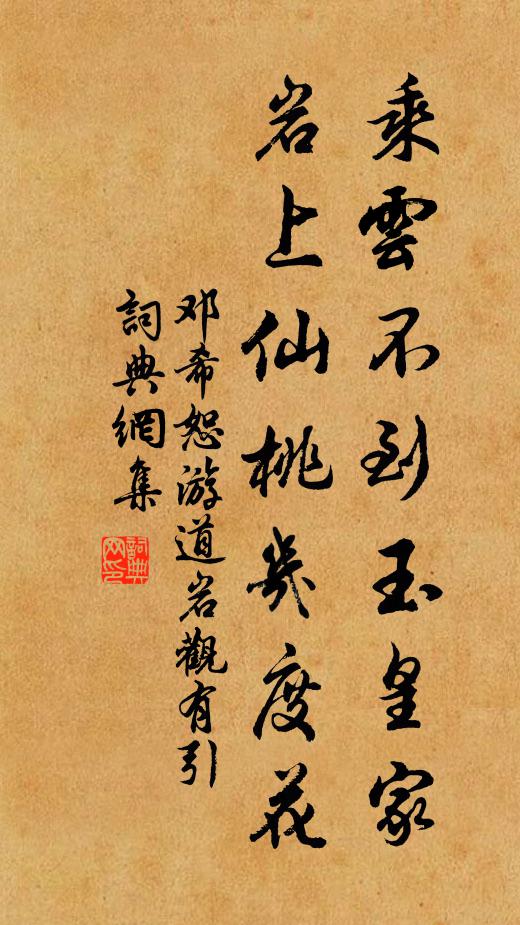 乘雲不到玉皇家
岩上仙桃幾度花
邓希恕游道岩觀有引
詞典網集
詞典
网印